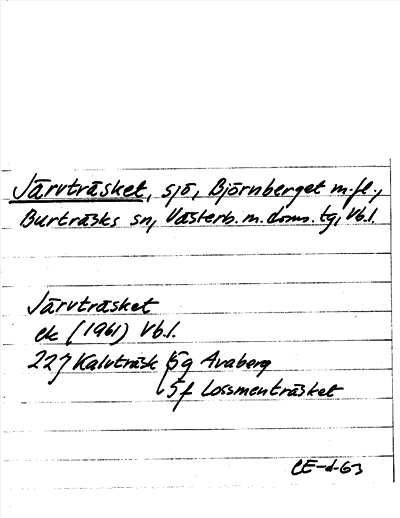 Järvträsket, sjö, Björnberget m.fl.,
Burträsks sn, Västerb. m. doms. tg, Vb.l.
Järvträsket
ek (1961) Vb.l.
22J Kalvträsk 5g Avaberg
5f Lossmenträsket
CE-d-63